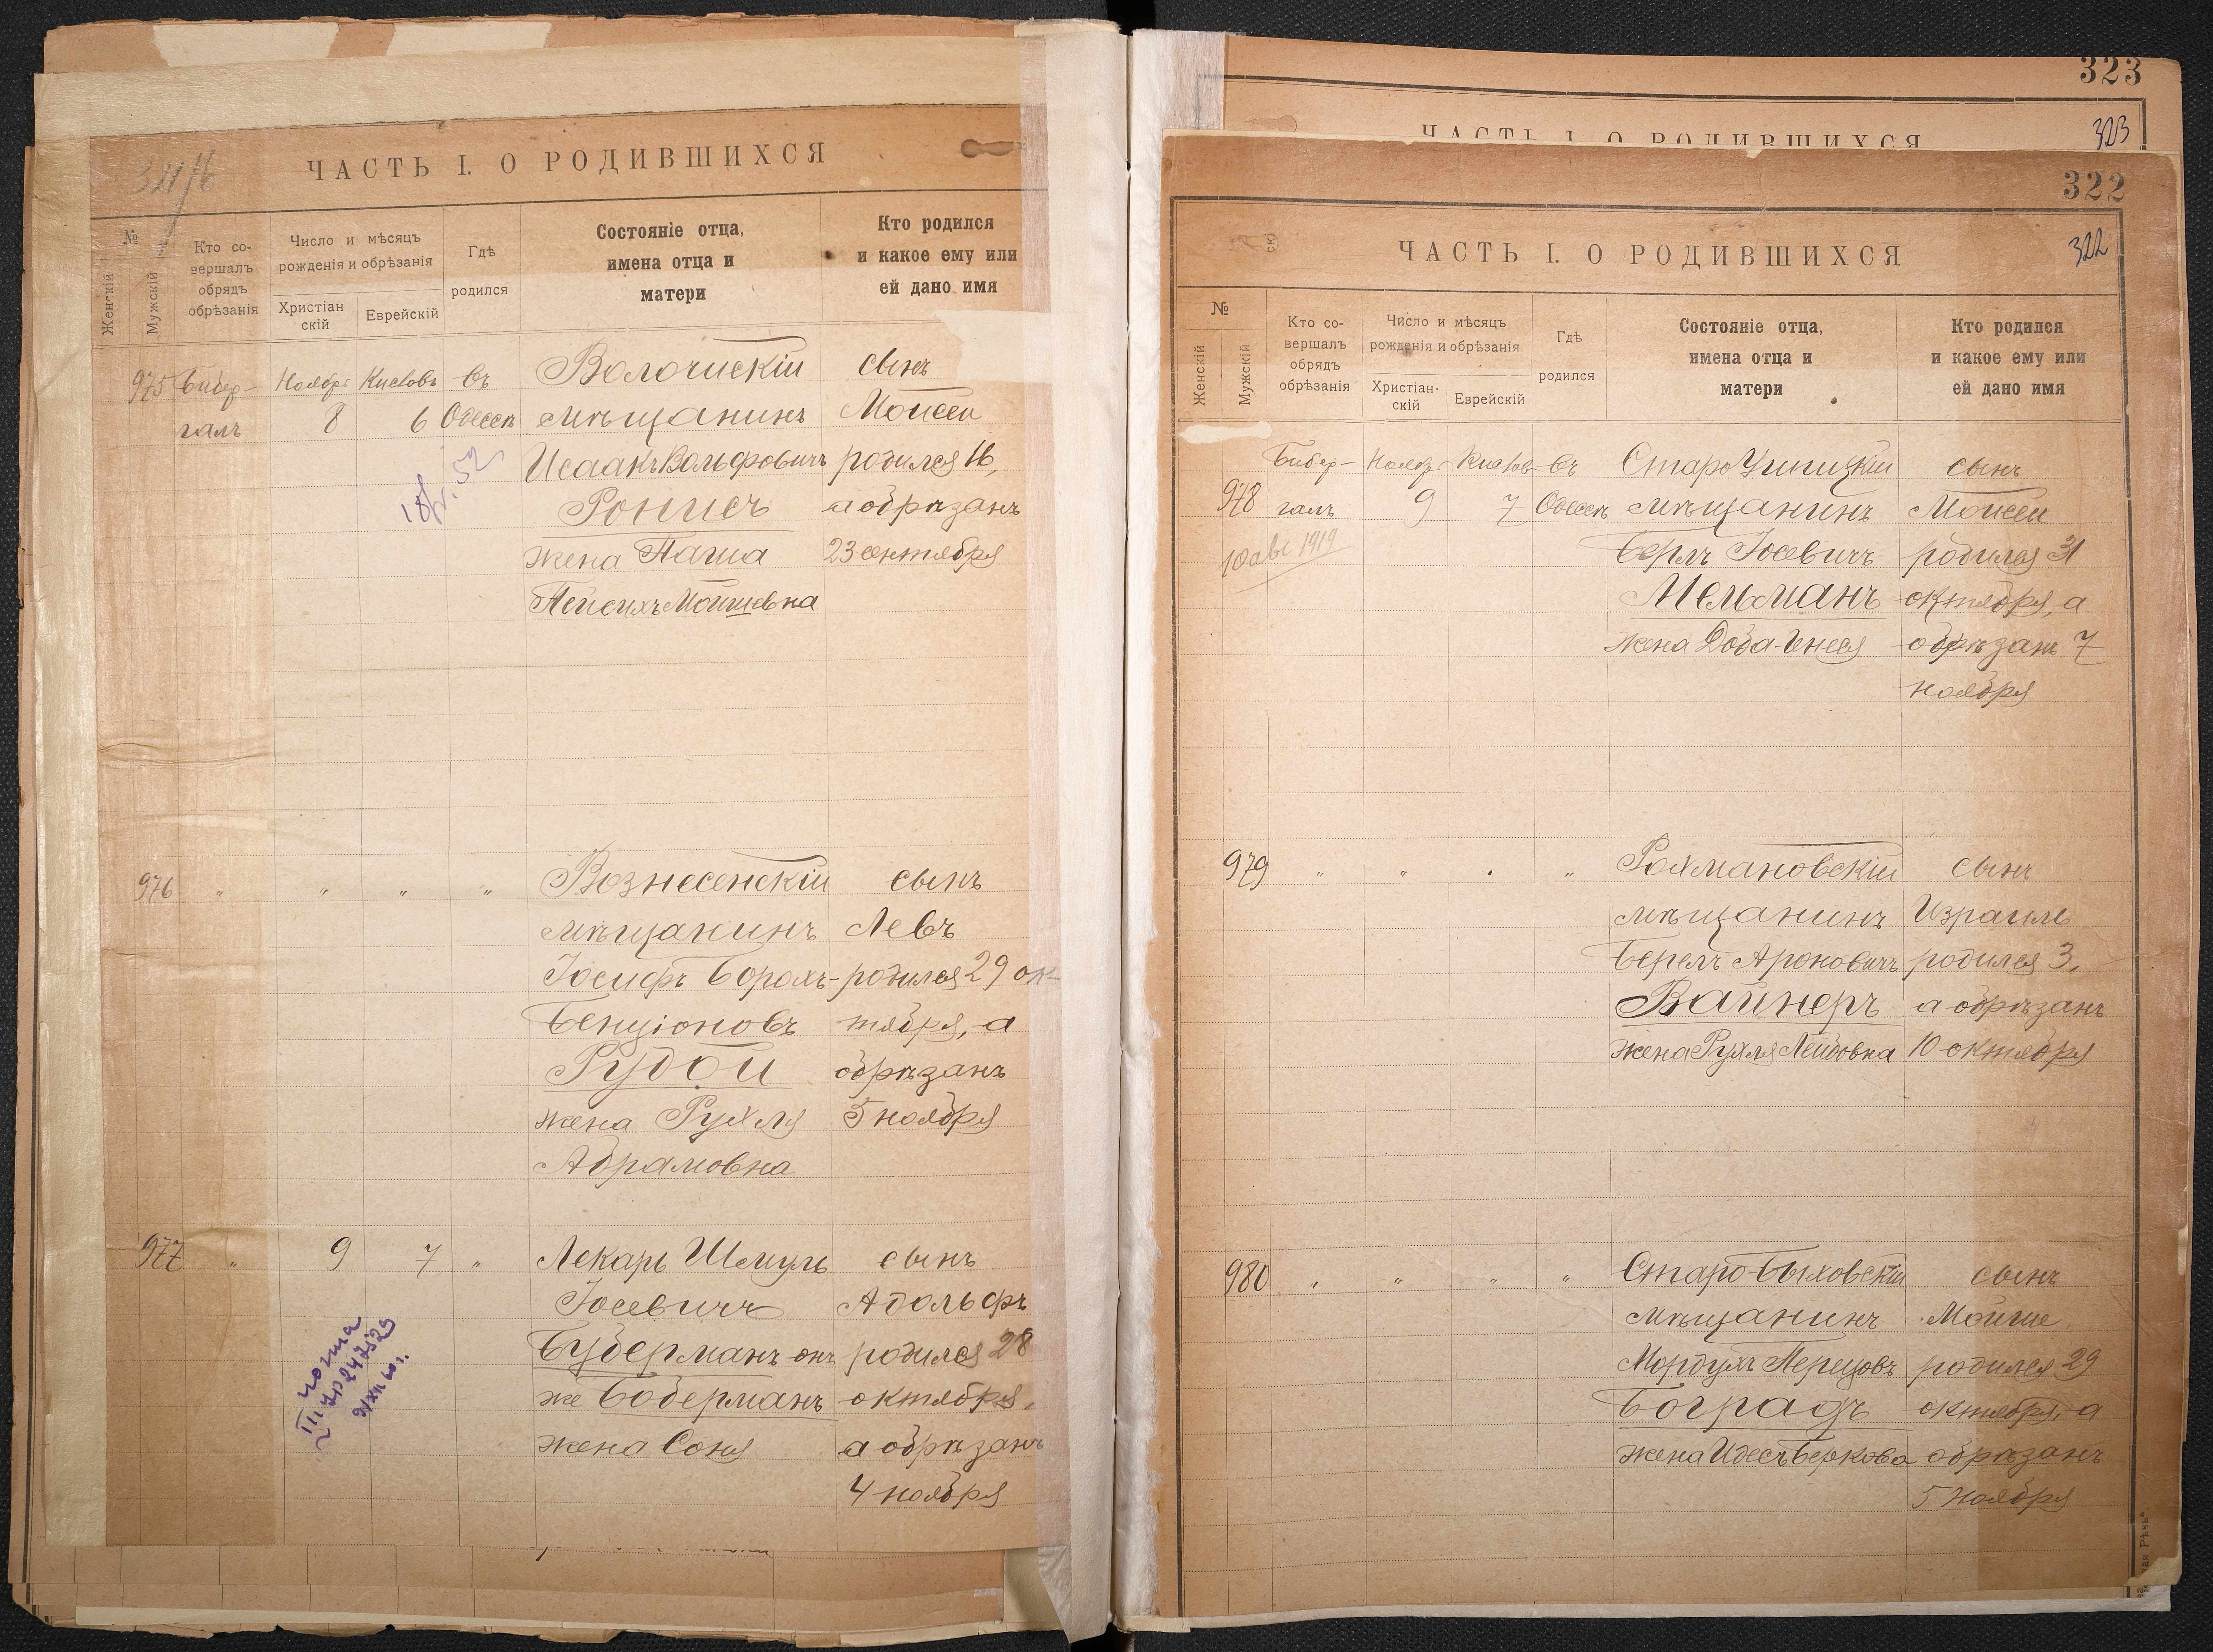 ЧАСТЬ I. О РОДИВШИХСЯ
№
Женскій
Мужскій
Кто со-
вершалъ
обрядъ
обрѣзанія
Число и мѣсяцъ
рожденія и обрѣзанія
Христіан
скій
Еврейскій
Гдѣ
родился
Состояніе отца,
имена отца и
матери
Кто родился
и какое ему или
ей дано имя
975 Бибер- Ноябр. Кислевъ въ Волочискій сынъ
галъ 8 6 Одессѣ мѣщанинъ Мойсей
Исаакъ Вольфовичъ родился 16,
Ронисъ а обрѣзанъ
жена Паша 23 сентября
Пейсихъ Мойшевна
976 " " " " Вознесенскій сынъ
мѣщанинъ Левъ
Іосифъ Борохъ- родился 29 ок-
Бенціоновъ тября, а
Рудой обрѣзанъ
жена Рухля 5 ноября
Абрамовна
977 " 9 7 " Лекарь Шмуль сынъ
Іосевичъ Адольфъ
Буберманъ онъ родился 28
же Боберманъ октября,
жена Соня а обрѣзанъ
4 ноября
323
ЧАСТЬ I. О РОДИВШИХСЯ
323
322
ЧАСТЬ I. О РОДИВШИХСЯ
322
№
Женскій
Мужскій
Кто со-
вершалъ
обрядъ
обрѣзанія
Число и мѣсяцъ
рожденія и обрѣзанія
Христіан-
скій
Еврейскій
Гдѣ
родился
Состояніе отца,
имена отца и
матери
Кто родился
и какое ему или
ей дано имя
Бибер- Ноябр. Кислев. въ СтароУшицкій сынъ
978 галъ 9 7 Одессѣ мѣщанинъ Мойсей
1919 Берлъ Іосевичъ родился 31
Мельманъ октября, а
жена Доба-Инея обрѣзанъ 7
ноября
979 " " " " Рахмановскій сынъ
мѣщанинъ Израиль
Берелъ Ароновичъ родился 3,
Вайнеръ а обрѣзанъ
жена Рухля Лейбовна 10 октября
980 " " " " Старо-Быховскій сынъ
мѣщанинъ Мойше
Мордухъ Перецовъ родился 29
Боградъ октября, а
жена Идесъ Беркова обрѣзанъ
5 ноября